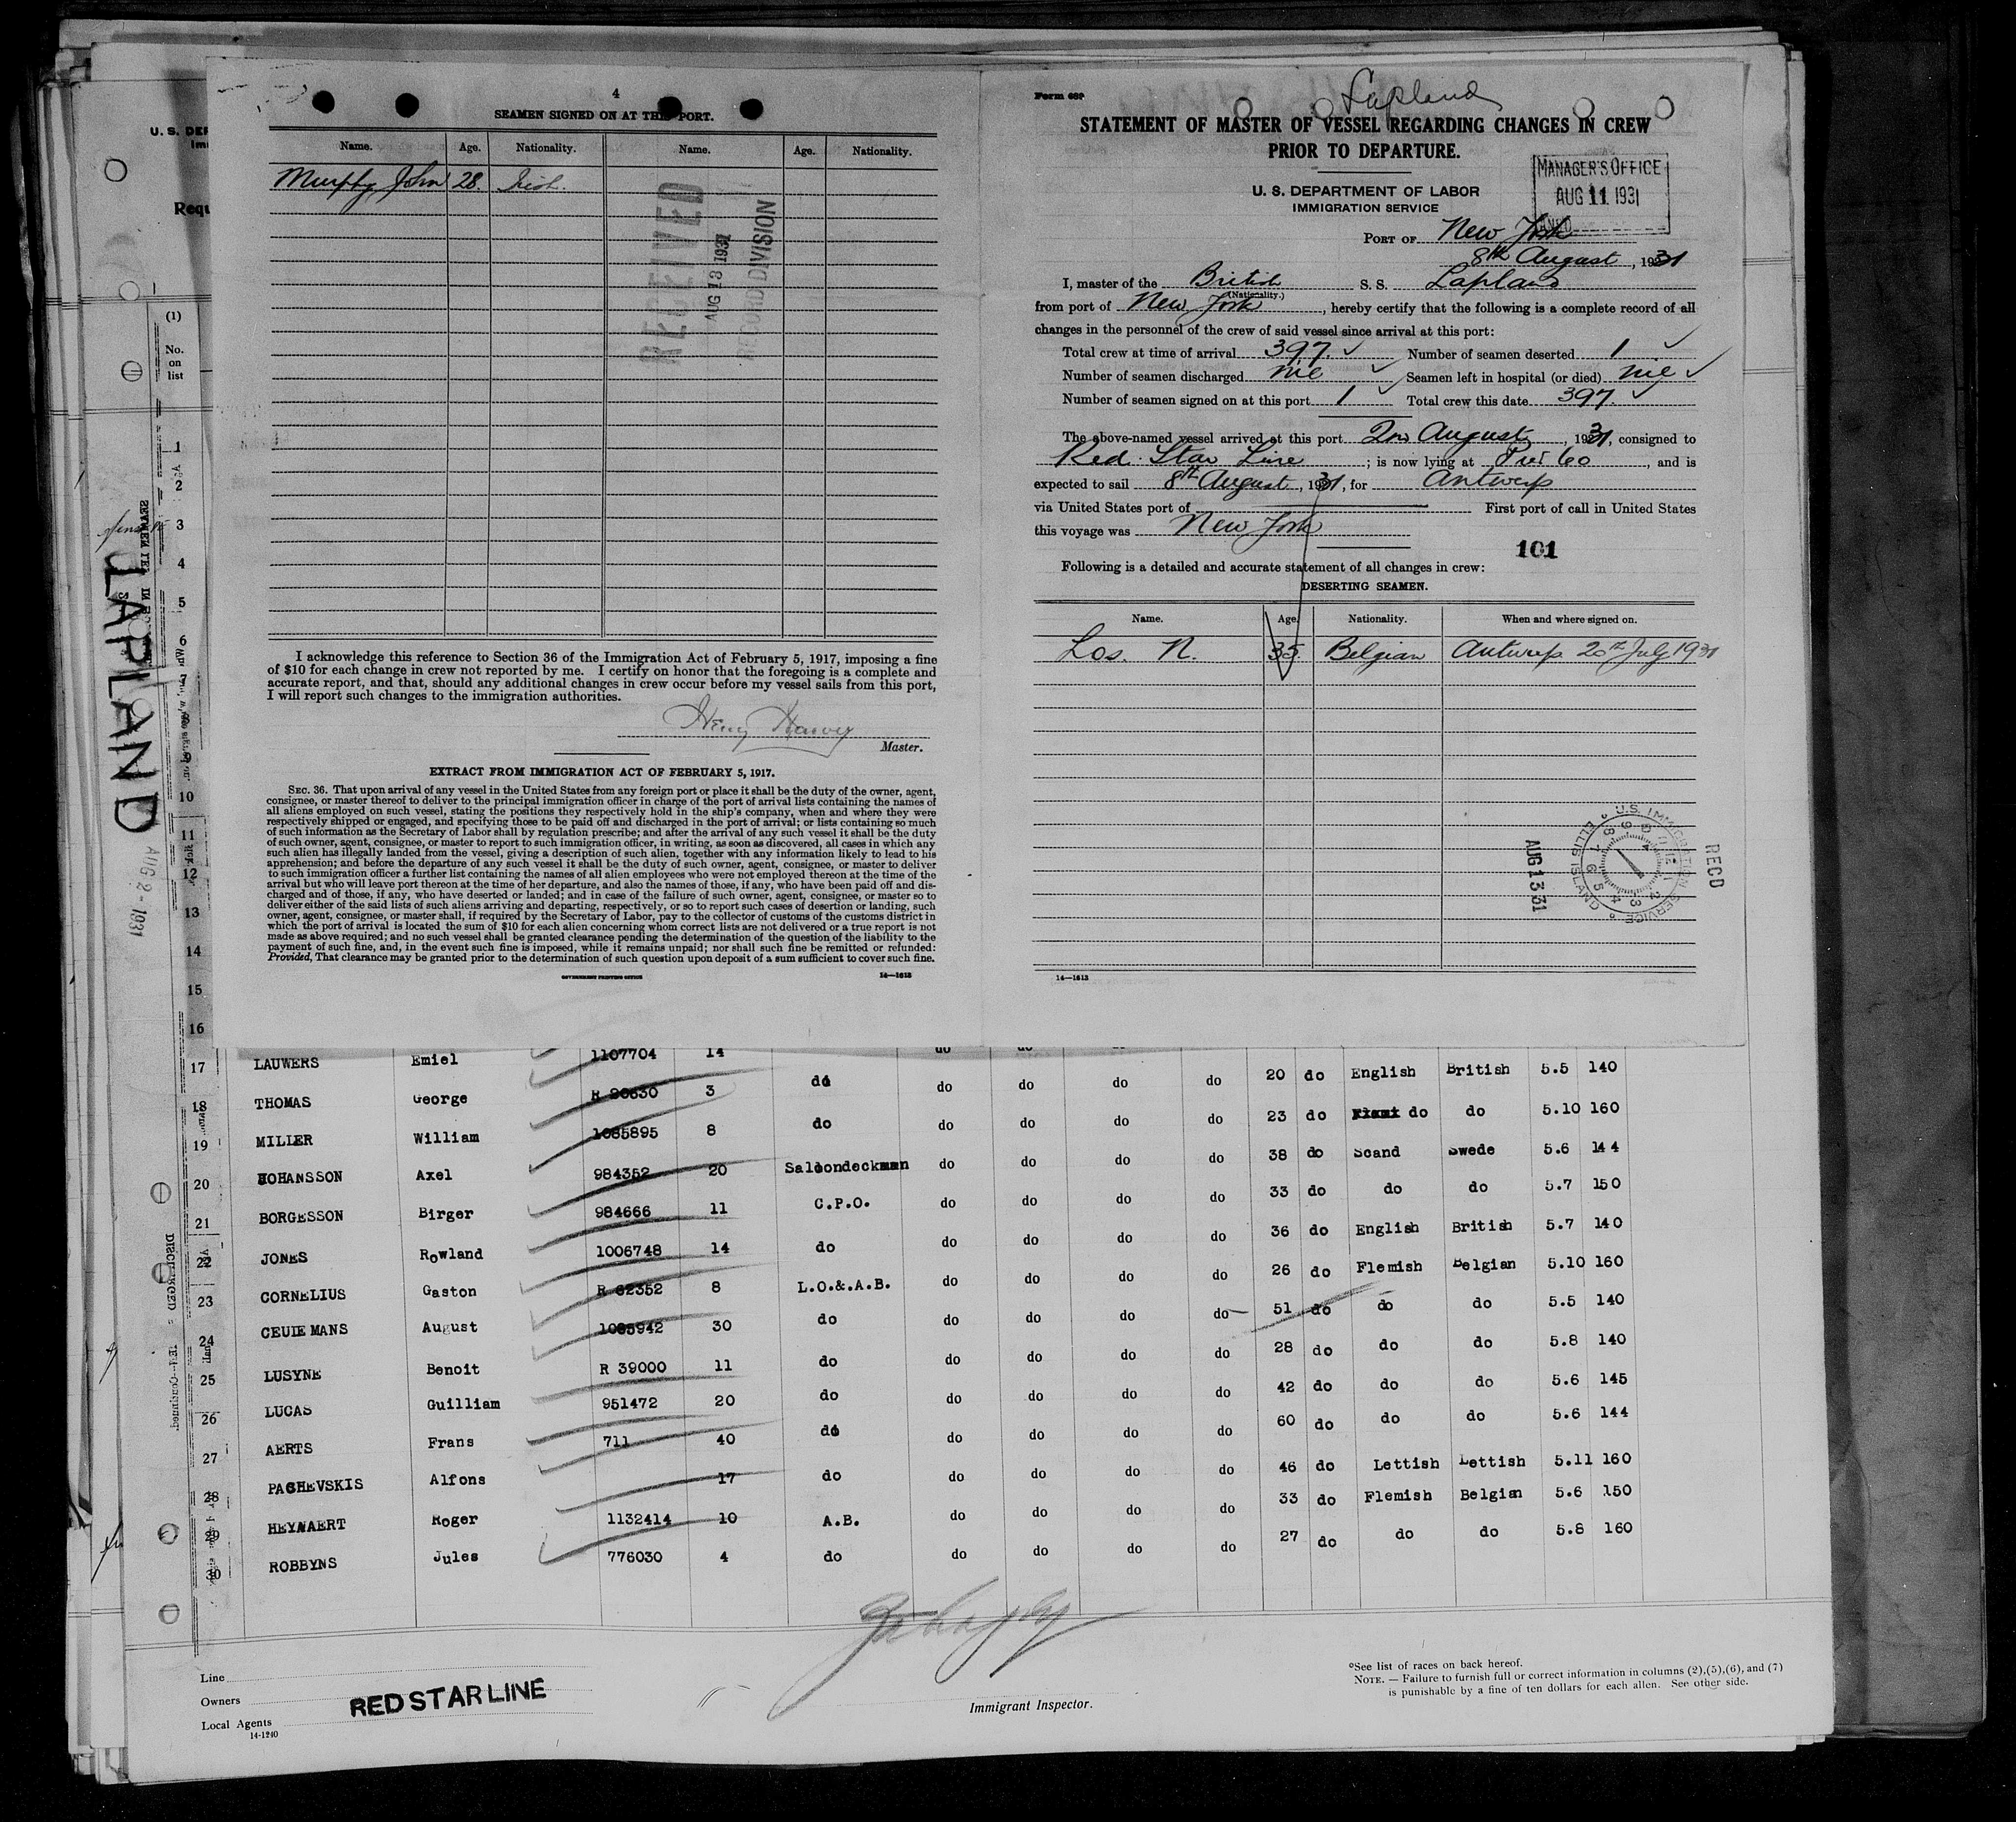 4
SEAMEN SIGNED ON AT THIS PORT.
Name. Age. Nationality. Name. Age. Nationality.
Murphy, John 28. Irish.
RECEIVED
AUG 13 1931
RECORD DIVISION
I acknowledge this reference to Section 36 of the Immigration Act of February 5, 1917, imposing a fine
of $10 for each change in crew not reported by me. I certify on honor that the foregoing is a complete and
accurate report, and that, should any additional changes in crew occur before my vessel sails from this port,
I will report such changes to the immigration authorities.
Henry Harvey
Master.
EXTRACT FROM IMMIGRATION ACT OF FEBRUARY 5, 1917.
SEC. 36. That upon arrival of any vessel in the United States from any foreign port or place it shall be the duty of the owner, agent,
consignee, or master thereof to deliver to the principal immigration officer in charge of the port of arrival lists containing the names of
all aliens employed on such vessel, stating the positions they respectively hold in the ship's company, when and where they were
respectively shipped or engaged, and specifying those to be paid off and discharged in the port of arrival; or lists containing so much
of such information as the Secretary of Labor shall by regulation prescribe; and after the arrival of any such vessel it shall be the duty
of such owner, agent, consignee, or master to report to such immigration officer, in writing, as soon as discovered, all cases in which any
such alien has illegally landed from the vessel, giving a description of such alien, together with any information likely to lead to his
apprehension; and before the departure of any such vessel it shall be the duty of such owner, agent, consignee, or master to deliver
to such immigration officer a further list containing the names of all alien employees who were not employed thereon at the time of the
arrival but who will leave port thereon at the time of her departure, and also the names of those, if any, who have been paid off and dis-
charged and of those, if any, who have deserted or landed; and in case of the failure of such owner, agent, consignee, or master so to
deliver either of the said lists of such aliens arriving and departing, respectively, or so to report such cases of desertion or landing, such
owner, agent, consignee, or master shall, if required by the Secretary of Labor, pay to the collector of customs of the customs district in
which the port of arrival is located the sum of $10 for each alien concerning whom correct lists are not delivered or a true report is not
made as above required; and no such vessel shall be granted clearance pending the determination of the question of the liability to the
payment of such fine, and, in the event such fine is imposed, while it remains unpaid; nor shall such fine be remitted or refunded:
Provided, That clearance may be granted prior to the determination of such question upon deposit of a sum sufficient to cover such fine.
GOVERNMENT PRINTING OFFICE 14—1613
Form 689
Lapland
STATEMENT OF MASTER OF VESSEL REGARDING CHANGES IN CREW
PRIOR TO DEPARTURE.
U. S. DEPARTMENT OF LABOR
IMMIGRATION SERVICE
MANAGER'S OFFICE
AUG 11 1931
PORT OF New York
8th August, 1931
I, master of the British S. S. Lapland
(Nationality.)
from port of New York, hereby certify that the following is a complete record of all
changes in the personnel of the crew of said vessel since arrival at this port:
Total crew at time of arrival 397. Number of seamen deserted 1
Number of seamen discharged nil Seamen left in hospital (or died) nil
Number of seamen signed on at this port 1 Total crew this date 397.
The above-named vessel arrived at this port 2nd August, 1931, consigned to
Red Star Line; is now lying at Pier 60, and is
expected to sail 8th August, 1931, for Antwerp
via United States port of First port of call in United States
this voyage was New York
101
Following is a detailed and accurate statement of all changes in crew:
DESERTING SEAMEN.
Name. Age. Nationality. When and where signed on.
Los. N. 35. Belgian Antwerp 20th July 1931
U.S. IMMIGRATION SERVICE ELLIS ISLAND
RECD
AUG 13 31
14—1613
LAPLAND
AUG 2 - 1931
(1)
No.
on
list
1
2
3
4
5
6
10
11
12
13
14
15
16
17 LAUWERS Emiel 1107704 14 do do
18 THOMAS George R 20630 3 do do do do do 20 do English British 5.5 140
19 MILLER William 1085895 8 do do do do do 23 do do do 5.10 160
20 JOHANSSON Axel 984352 20 Saloondeckman do do do do 38 do Scand Swede 5.6 144
21 BORGESSON Birger 984666 11 C.P.O. do do do do 33 do do do 5.7 150
22 JONES Rowland 1006748 14 do do do do do 36 do English British 5.7 140
23 CORNELIUS Gaston R 62352 8 L.O.&.A.B. do do do do 26 do Flemish Belgian 5.10 160
24 CEULEMANS August 1085942 30 do do do do do 51 do do do 5.5 140
25 LUSYNE Benoit R 39000 11 do do do do do 28 do do do 5.8 140
26 LUCAS Guilliam 951472 20 do do do do do 42 do do do 5.6 145
27 AERTS Frans 711 40 do do do do do 60 do do do 5.6 144
28 PACHEVSKIS Alfons 17 do do do do do 46 do Lettish Lettish 5.11 160
29 HEYNAERT Roger 1132414 10 A.B. do do do do 33 do Flemish Belgian 5.6 150
30 ROBBYNS Jules 776030 4 do do do do do 27 do do do 5.8 160
Line
Owners
RED STAR LINE
Local Agents
14-1240
Immigrant Inspector.
*See list of races on back hereof.
NOTE. — Failure to furnish full or correct information in columns (2),(5),(6), and (7)
is punishable by a fine of ten dollars for each alien. See other side.